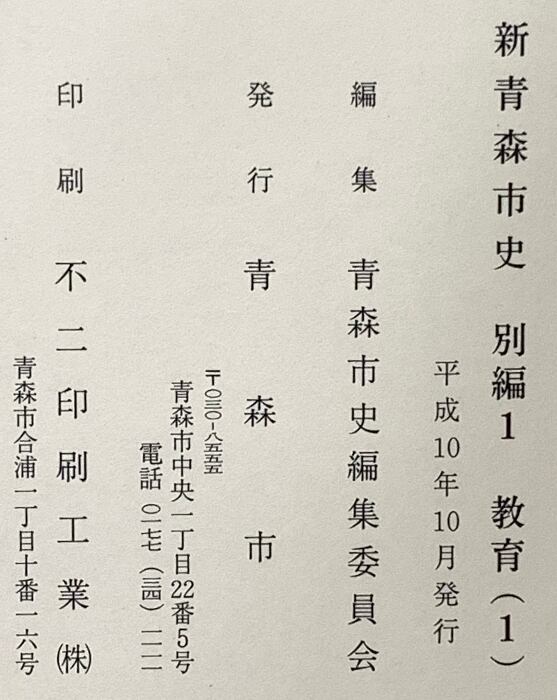 新青森市史　別編1　教育(1)
平成10年10月発行
編集　青森市史編集委員会
発行　青森市
〒〇三〇-八五五五
青森市中央一丁目22番5号
電話　〇一七七(三四)一一一一
印刷　不二印刷工業㈱
青森市合浦一丁目十番一六号